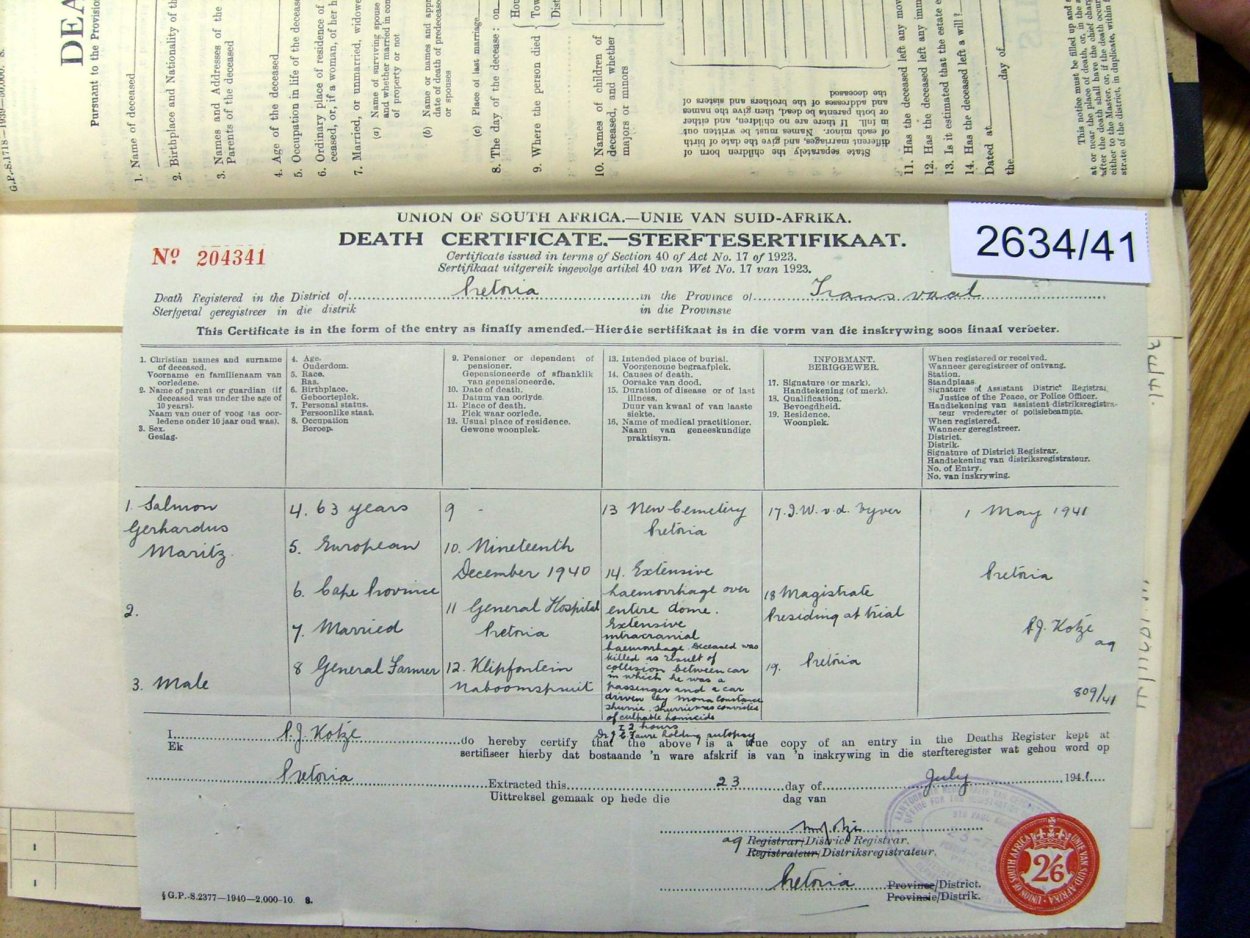 G.P.-S.1718—1939—50,000. S.
DEA
Pursuant to the Provision
1. Name of deceased
2. Birthplace and Nationality of the
3. Names and Addresses of the
Parents of the deceased
4. Age of the deceased
5. Occupation in life of the decease
6. Ordinary place of residence of
ceased, or, if a woman, of her h
7. Married, or unmarried, widowe
(a) Name of surviving spouse
and whether married in com
of property or not
(b) Name or names and appr
date of death of predecease
or spouses
(c) Place of last marriage
8. The day of the decease: on
9. Where the person died
Hou
Tow
Dist
10. Names of children of
deceased, and whether
majors or minors
State separately the children born of
different marriages, and give the date of birth
of each minor. Names must be written out
in full. If there are no children, and either
or both parents be dead, then give the names
and addresses of the brothers and sisters of
the deceased
11. Has the deceased left any mov
12. Has the deceased left any imm
13. Is it estimated that the estate e
14. Has the deceased left a will?
Dated at
the day of
This notice must be filled up and s
at or near the place of death, or, in the a
after the death shall have the chief charg
either to the Master, or, if the death occur
strate of the district, in duplicate, within f
UNION OF SOUTH AFRICA.—UNIE VAN SUID-AFRIKA.
DEATH CERTIFICATE.—STERFTESERTIFIKAAT.
2634/41
No 204341
Certificate issued in terms of Section 40 of Act No. 17 of 1923.
Sertifikaat uitgereik ingevolge artikel 40 van Wet No. 17 van 1923.
Death Registered in the District of Pretoria in the Province of Transvaal
Sterfgeval geregistreer in die distrik in die Provinsie
This Certificate is in the form of the entry as finally amended.—Hierdie sertifikaat is in die vorm van die inskrywing soos finaal verbeter.
1. Christian names and surname
of deceased.
Voorname en familienaam van
oorledene.
2. Name of parent or guardian (if
deceased was under the age of
10 years).
Naam van ouer of voog (as oor-
ledene onder 10 jaar oud was).
3. Sex.
Geslag.
4. Age.
Ouderdom.
5. Race.
Ras.
6. Birthplace.
Geboorteplek.
7. Personal status.
Persoonlike staat.
8. Occupation
Beroep.
9. Pensioner or dependent of
pensioner.
Gepensioneerde of afhanklik
van gepensioneerde.
10. Date of death.
Datum van oorlyde.
11. Place of death.
Plek waar oorlede.
12. Usual place of residence.
Gewone woonplek.
13. Intended place of burial.
Voorgenome begraafplek.
14. Causes of death.
Oorsake van dood.
15. Duration of disease or of last
illness.
Duur van kwaal of van laaste
siekte.
16. Name of medical practitioner.
Naam van geneeskundige
praktisyn.
INFORMANT.
BERIGGEWER.
17. Signature (or mark).
Handtekening (of merk).
18. Qualification.
Bevoegdheid.
19. Residence.
Woonplek.
When registered or received.
Wanneer geregistreer of ontvang.
Station.
Standplaas.
Signature of Assistant District Registrar,
Justice of the Peace, or Police Officer.
Handtekening van assistent-distriksregistra-
teur vrederegter of polisiebeampte.
When registered.
Wanneer geregistreer.
District.
Distrik.
Signature of District Registrar.
Handtekening van distriksregistrateur.
No. of Entry.
No. van inskrywing.
1. Salmon
Gerhardus
Maritz
2.
3. Male
4. 63 years
5. European
6. Cape Province
7. Married
8 General Farmer
9 -
10. Nineteenth
December 1940
11 General Hospital
Pretoria
12. Klipfontein
Naboomspruit
13 New Cemetery
Pretoria
14. Extensive
haemorrhage over
entire dome.
Extensive
intracranial
haemorrhage. Deceased was
killed as result of
collision between car
in which he was a
passenger and a car
driven by Mona Constance
was convicted
of culpable homicide
2 hours
Faure holding autopsy
17. J.W. v.d. Vyver
18 Magistrate
Presiding at trial
19. Pretoria
1 May 1941
Pretoria
P.J. Kotze
ag
809/41
I P.J. Kotze do hereby certify that the above is a true copy of an entry in the Deaths Register kept at
Ek sertifiseer hierby dat bostaande 'n ware afskrif is van 'n inskrywing in die sterfteregister wat gehou word op
Pretoria Extracted this 23 day of July 1941.
Uittreksel gemaak op hede die dag van
ag Registrar/District Registrar.
Registrateur/Distriksregistrateur.
Pretoria Province/District.
Provinsie/Distrik.
UNION OF SOUTH AFRICA · UNIE VAN SUID-AFRIKA
2/6
G.P.-S.2377—1940—2.000-10. S.